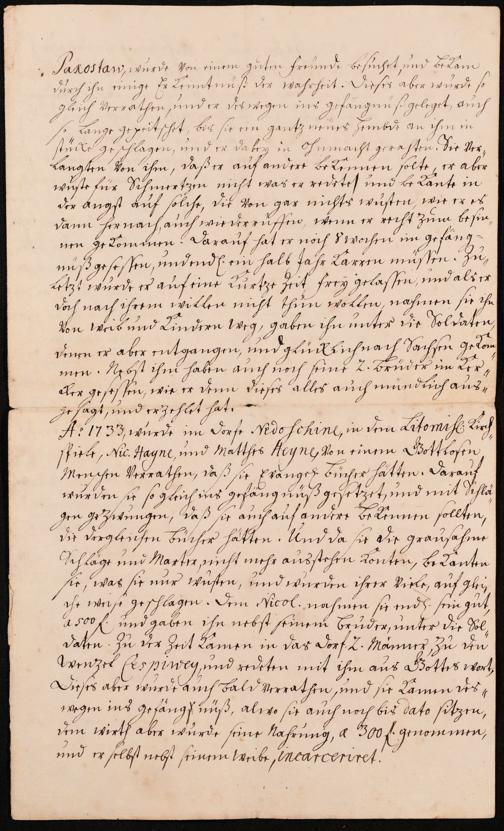 Pakostaw, wurde von einem guten freunde besuchet, und bekam
durch ihn einige Erkenntnuß der wahrheit. Dieses aber wurde so
gleich verrathen, und er deswegen ins gefängnuß geleget, auch
so lange gepeitschet, bis sie ein gantz neues hembde an ihm in
stücke geschlagen, und er dabey in Ohnmacht gerathen. Sie ver,
langten von ihm, daß er auf andere bekennen solte, er aber
wuste für Schmertzen nicht was er redete, und bekante in
der angst auf solche, die von gar nichts wusten, wie er es
dann hernach auch wiederruffen, wenn er recht zum besin,
nen gekommen. Darauf hat er noch 8 wochen im gefäng,
nüß gesessen, und endl. ein halb Jahr karren müssen. Zu,
letzt wurde er auf eine kurtze Zeit frey gelassen, und als er
doch nach ihrem willen nicht thun wollen, nahmen sie ihn
von weib und Kindern weg, gaben ihn unter die Soldaten,
denen er aber entgangen, und glücklich nach Sachsen gekom
men. Nebst ihm haben auch noch seine 2. brüder im Ker,
cker gesessen, wie er denn dieses alles auch mündlich aus,
gesagt, und erzehlet hat.
A: 1733, wurde im dorfe Nedoschine, in dem Litomisl. Kirch,
spiele, Nic. Hayne, und Matthes Heyne, von einem Gottlosen
Menschen verrathen, daß sie Evangel. bücher hätten. Darauf
wurden sie so gleich ins gefängnüß gesetzet, und mit Schlä,
gen gezwungen, daß sie auch auf andere bekennen sollten,
die dergleichen bücher hätten. Und da sie die grausahme
Schläge und Marter nicht mehr ausstehen konten, bekanten
sie, was sie nur wusten, und wurden ihrer viele, auf glei,
che weise geschlagen. Dem Nicol. nahmen sie endl. sein gut,
a 500 f. und gaben ihn nebst seinem bruder, unter die Sol,
daten. Zu der Zeit kamen in das dorf 2. Männer, zu den
Wenzel und redeten mit ihm aus Gottes wort,
Dieses aber wurde auch bald verrathen, und sie kamen des,
wegen ins gefängnüß, alwo sie auch noch bis dato sitzen,
dem wirth aber wurde seine Nahrung, a 300 f. genommen,
und er selbst nebst seinem weibe, incarceriret.